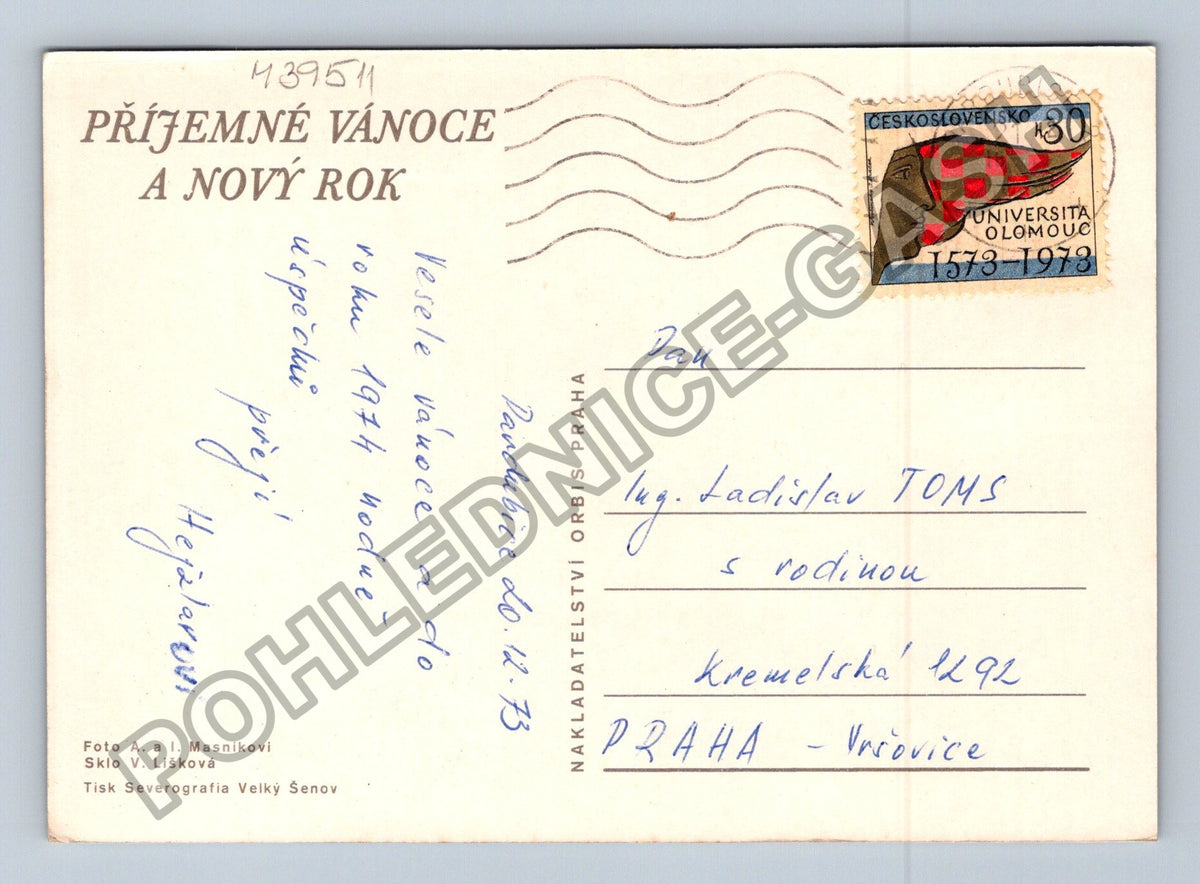 439511
PŘÍJEMNÉ VÁNOCE
A NOVÝ ROK
ČESKOSLOVENSKO
h30
UNIVERSITA
OLOMOUC
1573-1973
Pardubice 20.12.73
Veselé vánoce a do
roku 1974 hodně
úspěchů
přejí
Pan
Ing. Ladislav TOMS
s rodinou
Kremelská 1292
PRAHA - Vršovice
NAKLADATELSTVÍ ORBIS PRAHA
Foto A. a I. Masníkovi
Sklo V. Lišková
Tisk Severografia Velký Šenov
POHLEDNICE-GASH